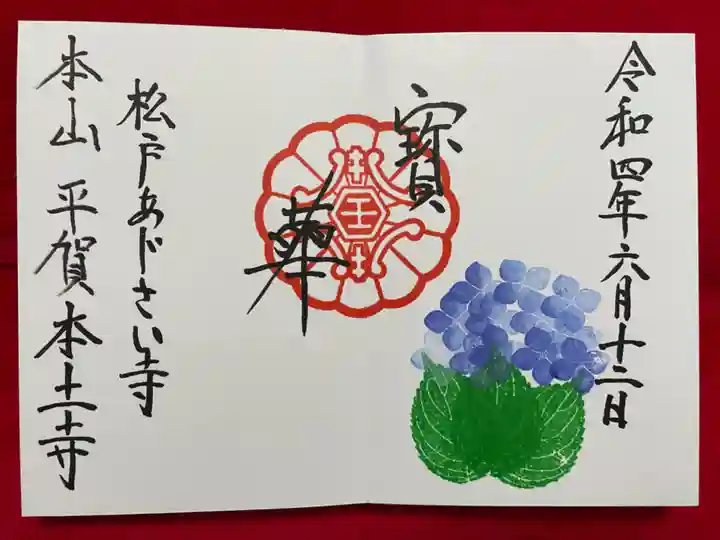 令和四年六月十二日
寳
華
王
松戸あじさい寺
本山 平賀本土寺